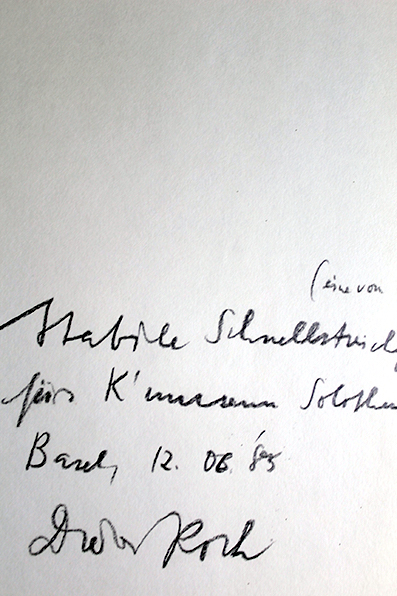 (eine von
Stabile Schnellstrich
fürs K'museum Soloth
Basel, 12. 06. '85
Dieter Roth